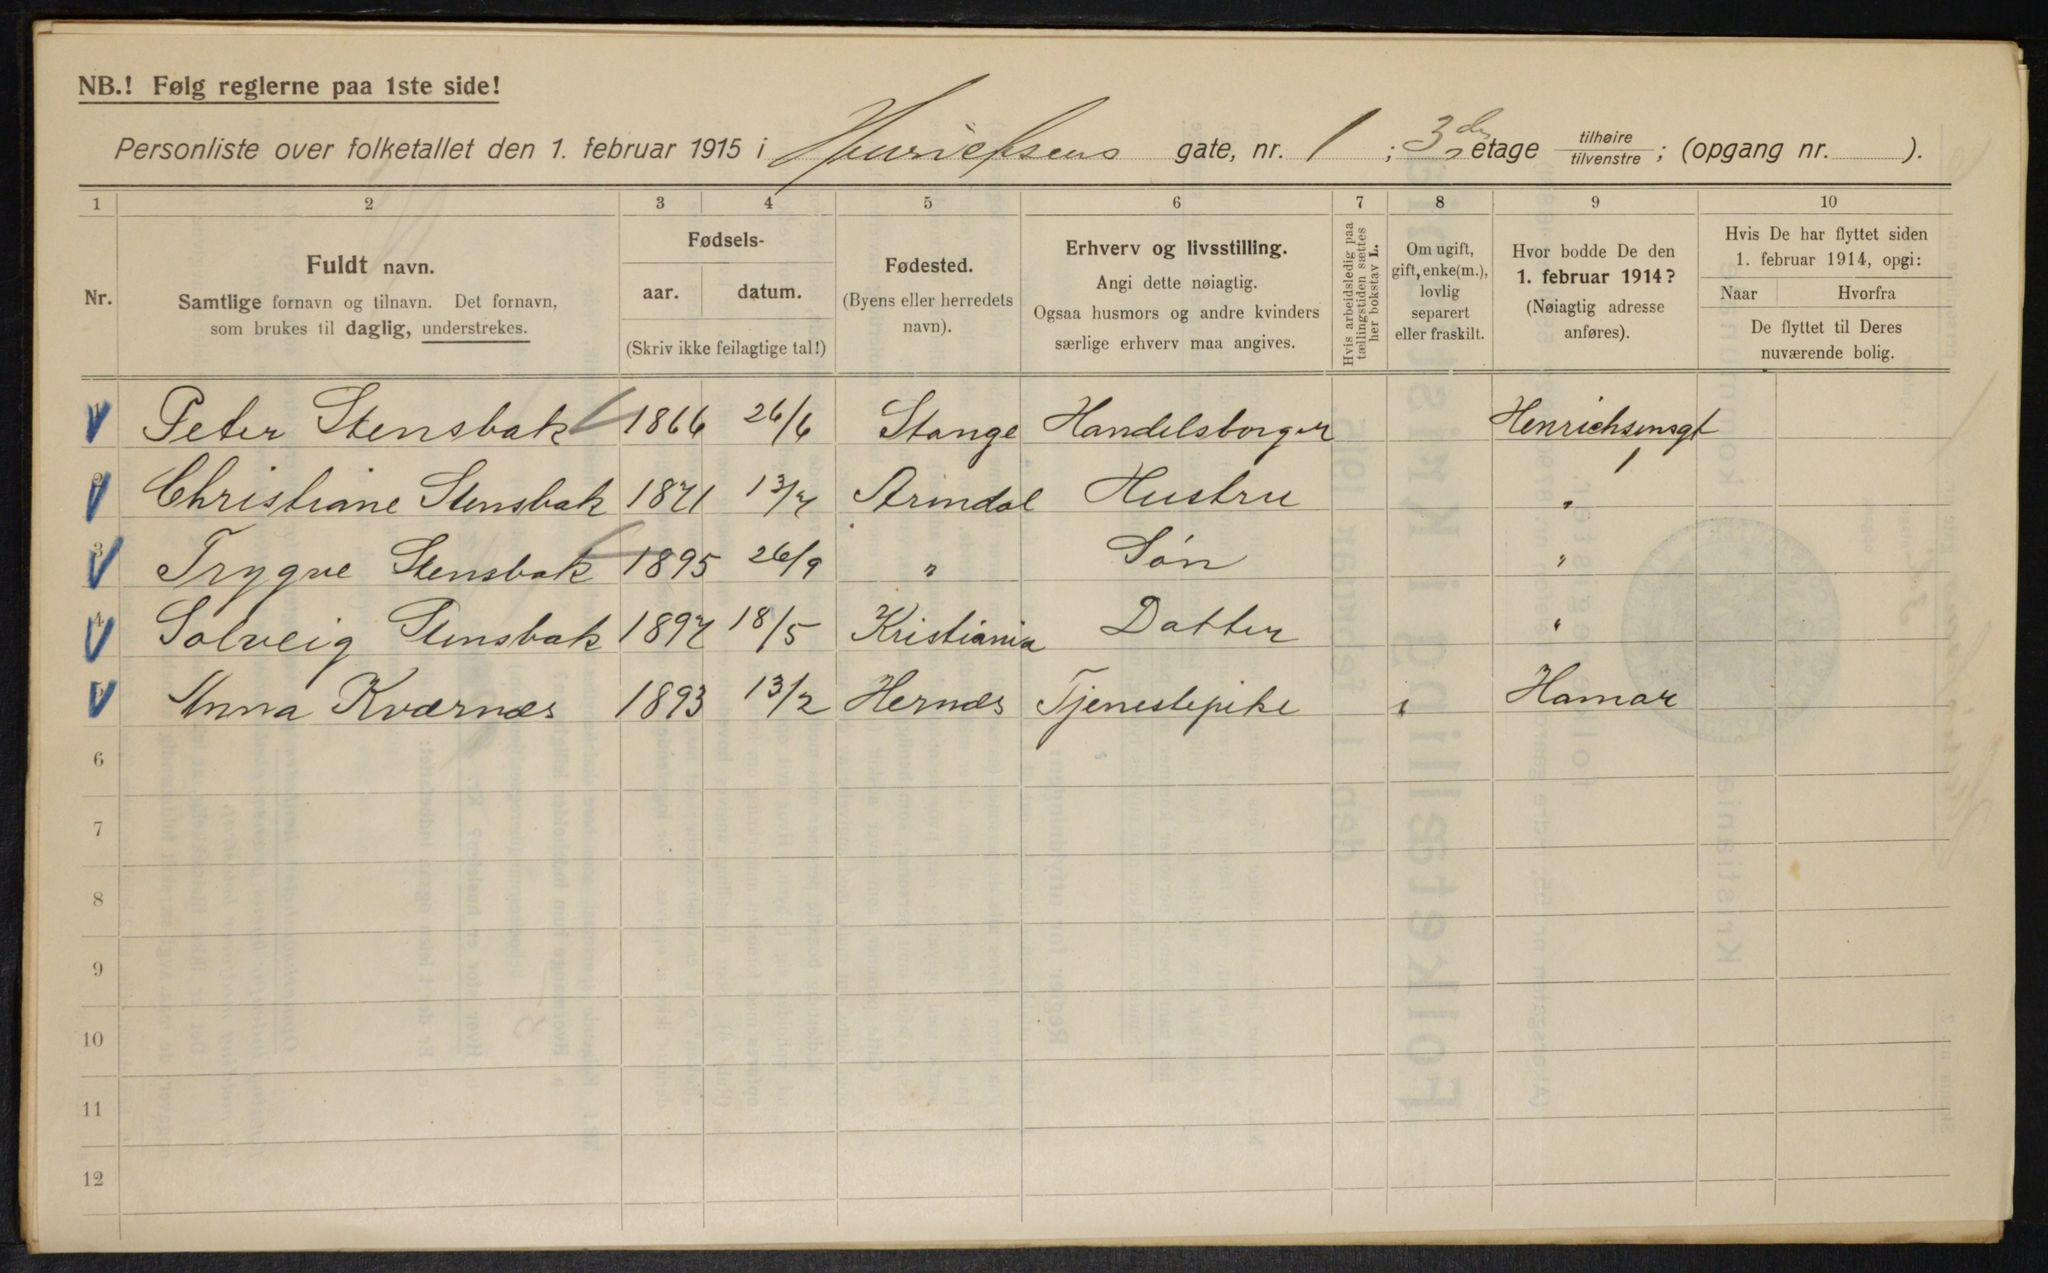 NB.! Følg reglerne paa 1ste side!
Personliste over folketallet den 1. februar 1915 i Henrichsens gate, nr. 1 ; 3die etage tilhøire / tilvenstre ; (opgang nr. ).
1 2 3 4 5 6 7 8 9 10
Nr.
Fuldt navn.
Samtlige fornavn og tilnavn. Det fornavn,
som brukes til daglig, understrekes.
Fødsels-
aar. datum.
(Skriv ikke feilagtige tal!)
Fødested.
(Byens eller herredets
navn).
Erhverv og livsstilling.
Angi dette nøiagtig.
Ogsaa husmors og andre kvinders
særlige erhverv maa angives.
Hvis arbeidsledig paa
tællingstiden sættes
her bokstav L.
Om ugift,
gift, enke(m.),
lovlig
separert
eller fraskilt.
Hvor bodde De den
1. februar 1914?
(Nøiagtig adresse
anføres).
Hvis De har flyttet siden
1. februar 1914, opgi:
Naar Hvorfra
De flyttet til Deres
nuværende bolig.
1 Peter Stensbak 1866 26/6 Stange Handelsborger Henrichsensgt 1
2 Christiane Stensbak 1871 13/7 Arendal Hustru "
3 Trygve Stensbak 1895 26/9 " Søn "
4 Solveig Stensbak 1897 18/5 Kristiania Datter "
5 Anna Kværnæs 1893 13/2 Hernæs Tjenestepike Hamar
6
7
8
9
10
11
12